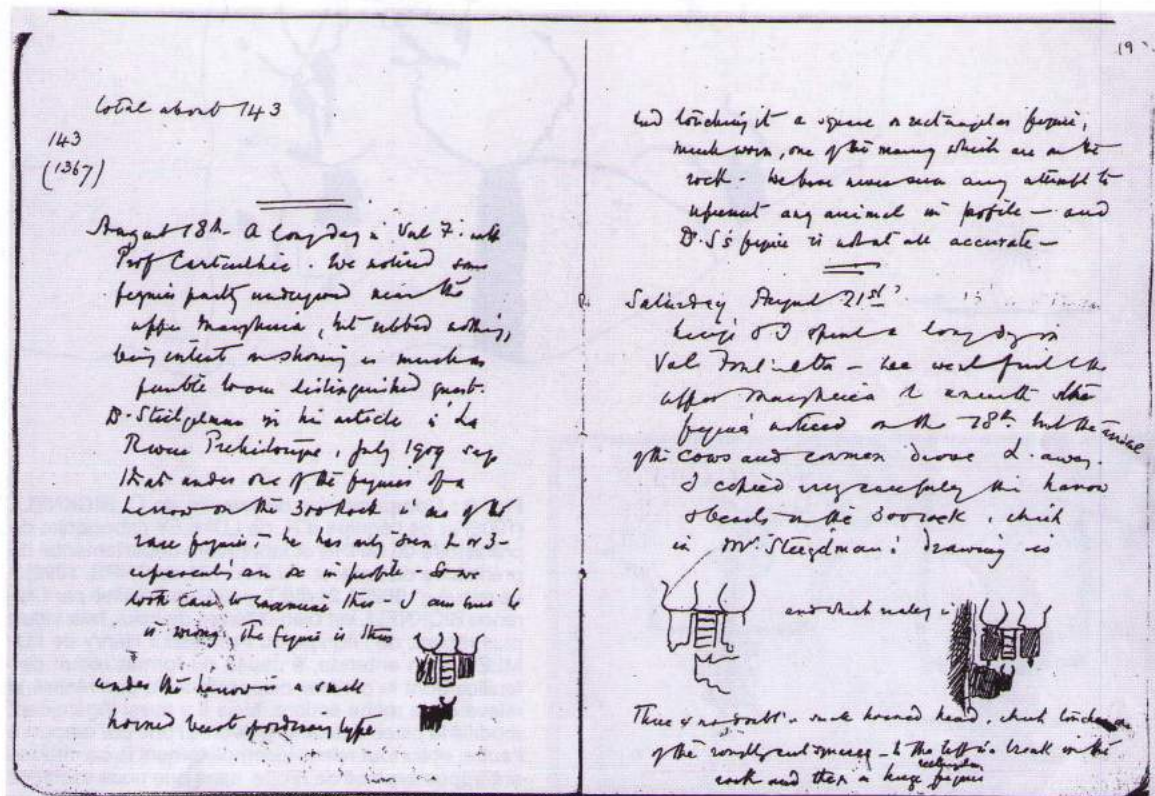 total about 143
143
(1367)
August 18th. A long day in Val F. with
Prof Cartailhac. We noticed some
figures partly underground near the
upper Margheria, but rubbed nothing,
being intent on showing as much as
possible to our distinguished guest.
Dr. Stiegelmann in his article in La
Revue Prehistorique, July 1909 says
that under one of the figures of a
harrow on the 300 Rock is one of the
rare figures - he has only seen 2 or 3 -
representing an ox in profile. So we
took care to examine this - I am sure he
is wrong. The figure is thus
under the harrow is a small
horned beast of ordinary type
19
and touching it a square or rectangular figure,
much worn, one of the many which are on the
rock. We have never seen any attempt to
represent any animal in profile - and
Dr. S's figure is not at all accurate -
Saturday August 21st
Luigi & I spent a long day in
Val Fontanalba - we went first to the
upper Margheria to unearth the
figures noticed on the 18th. but the
of the cows and common drove L. away.
I copied very carefully the harrow
& beasts on the 300 rock, which
in Mr. Stiegelmann's drawing is
and which really is
There is no doubt a small horned head, which touches one
of the roughly cut squares - to the left is a break in the
rock and then a large rectangular figure